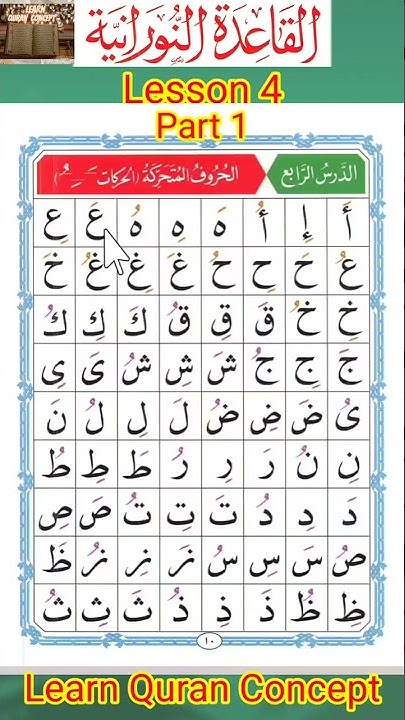 LEARN
QURAN CONCEPT
القَاعِدَة النُّورَانِيَّة
Lesson 4
Part 1
الدَّرسُ الرَّابِع
الحُرُوفُ المُتَحَرِّكَةُ (الحركات ـَ ـِ ـُ)
أَ إِ أُ هَ هِ هُ عَ عِ
عُ حَ حِ حُ غَ غِ غُ خَ
خِ خُ قَ قِ قُ كَ كِ كُ
جَ جِ جُ شَ شِ شُ یَ یِ
یُ ضَ ضِ ضُ لَ لِ لُ نَ
نِ نُ رَ رِ رُ طَ طِ طُ
دَ دِ دُ تَ تِ تُ صَ صِ
صُ سَ سِ سُ زَ زِ زُ ظَ
ظِ ظُ ذَ ذِ ذُ ثَ ثِ ثُ
١٠
Learn Quran Concept